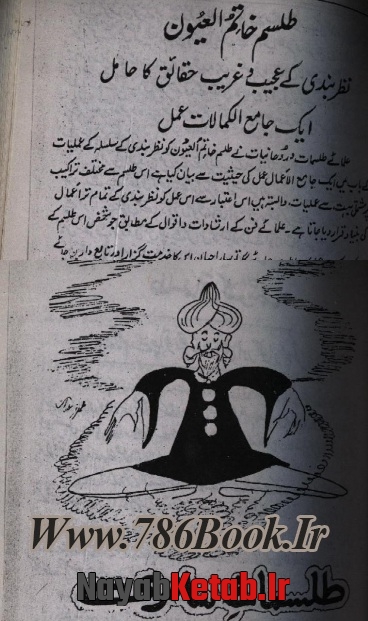 طلسم خاتم العیون
نظر بندی کے عجیب و غریب حقائق کا حامل
ایک جامع الکمالات عمل
علمائے طلسمات و روحانیات نے طلسم خاتم العیون کو نظر بندی کے سلسلہ کے عملیات
کے باب میں ایک جامع الاعمال عمل کی حیثیت سے بیان کیا ہے اس طلسم سے مختلف تراکیب
سے عملیات وابستہ ہیں اس اعتبار سے اس عمل کو نظر بندی کے تمام تر اعمال
کی بنیاد قرار دیا جاتا ہے۔ علمائے فن کے ارشادات و اقوال کے مطابق جو شخص اس طلسم کے
سارا جہان اس کا خدمت گزار اور تابع دار بن جائے
Www.786Book.Ir
NayabKetab.Ir
طلسمات